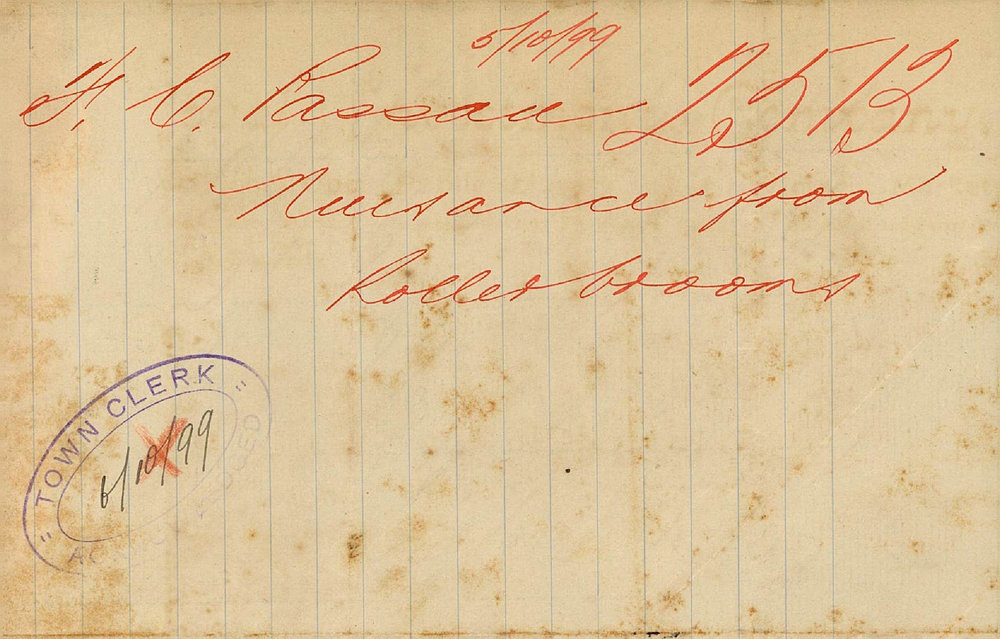 5/10/99
H. C. Passau 2513
Nuisance from
Roller brooms
TOWN CLERK
6/10/99